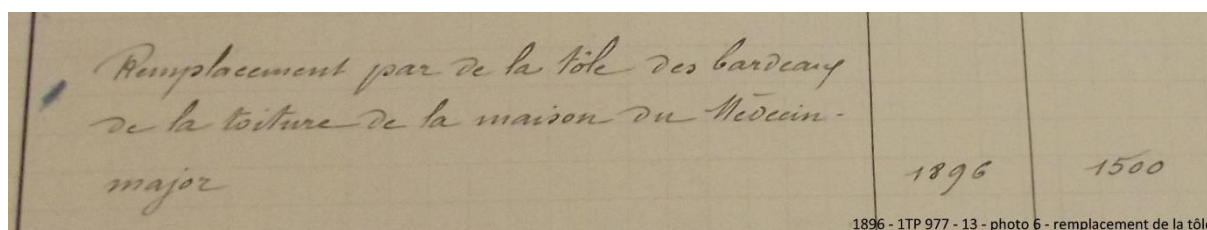 Remplacement par de la tôle des bardeaux
de la toiture de la maison du Médecin-
major 1896 1500
1896 - 1TP 977 - 13 - photo 6 - remplacement de la tôle